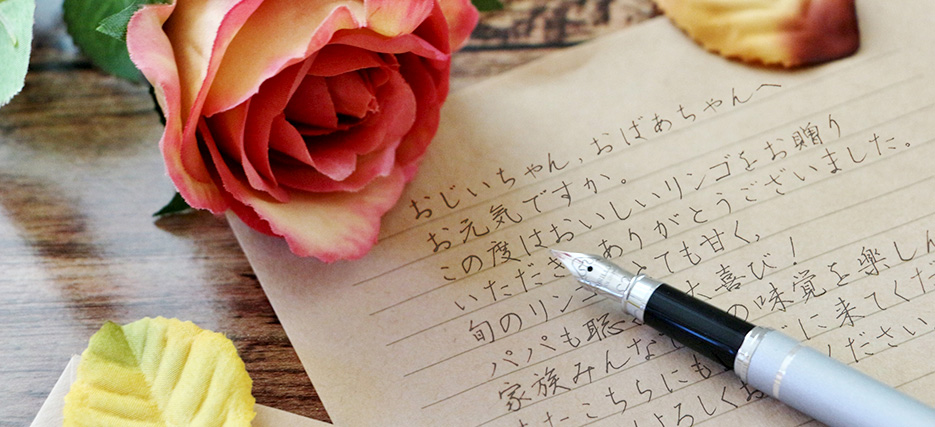 おじいちゃん、おばあちゃんへ
お元気ですか。
この度はおいしいリンゴをお贈り
いただき ありがとうございました。
旬のリンゴ ても甘く、
パパも聡 大喜び!
家族みんな の味覚を楽しん
たこちらにも に来てくだ
よろしくお ださい